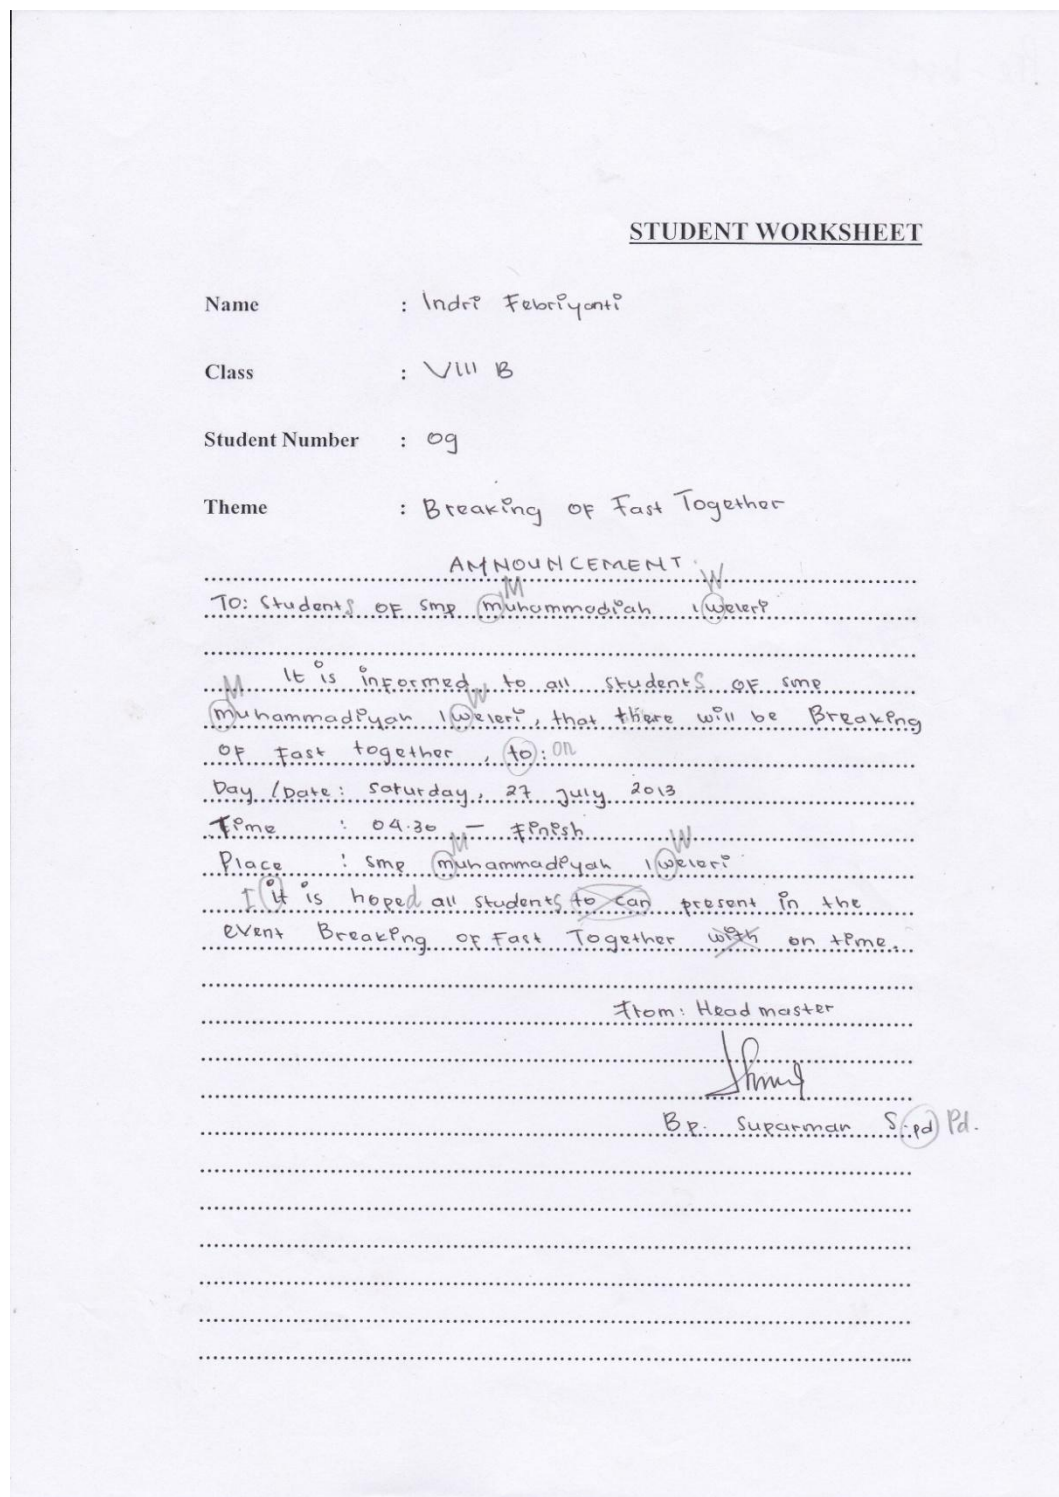 STUDENT WORKSHEET
Name : Indri Febriyanti
Class : VIII B
Student Number : 09
Theme : Breaking of Fast Together
ANNOUNCEMENT
M W
To: Students of smp muhammadiah 1 weleri
It is informed to all students of smp
M W
muhammadiyah 1 weleri, that there will be Breaking
of fast together, to: on
Day / Date : saturday, 27 july 2013
Time : 04.30 – finish
M W
Place : smp muhammadiyah 1 weleri
I it is hoped all students to can present in the
event Breaking of Fast Together with on time.
From: Head master
Bp. Suparman S.pd Pd.